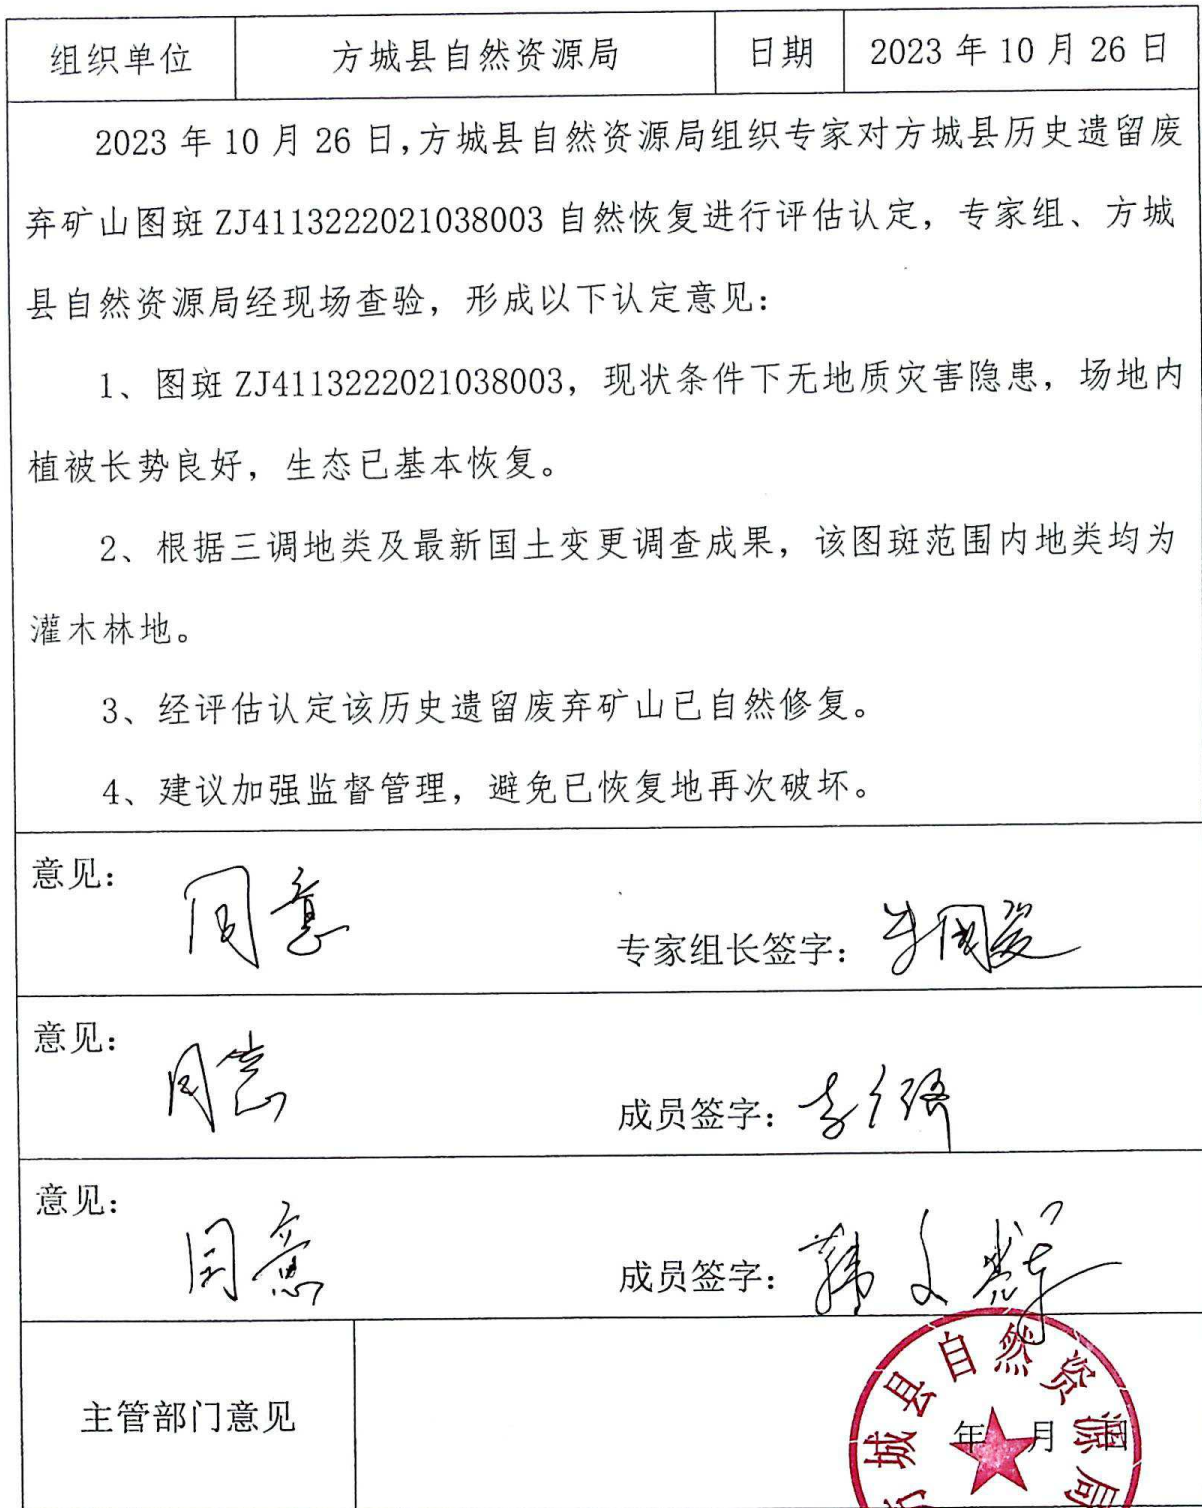 组织单位 方城县自然资源局 日期 2023 年 10 月 26 日
2023 年 10 月 26 日,方城县自然资源局组织专家对方城县历史遗留废
弃矿山图斑 ZJ4113222021038003 自然恢复进行评估认定，专家组、方城
县自然资源局经现场查验，形成以下认定意见：
1、图斑 ZJ4113222021038003，现状条件下无地质灾害隐患，场地内
植被长势良好，生态已基本恢复。
2、根据三调地类及最新国土变更调查成果，该图斑范围内地类均为
灌木林地。
3、经评估认定该历史遗留废弃矿山已自然修复。
4、建议加强监督管理，避免已恢复地再次破坏。
意见：
同意
专家组长签字：
意见：
同意
成员签字：
意见：
同意
成员签字：韩文辉
主管部门意见
年 月 日
方城县自然资源局